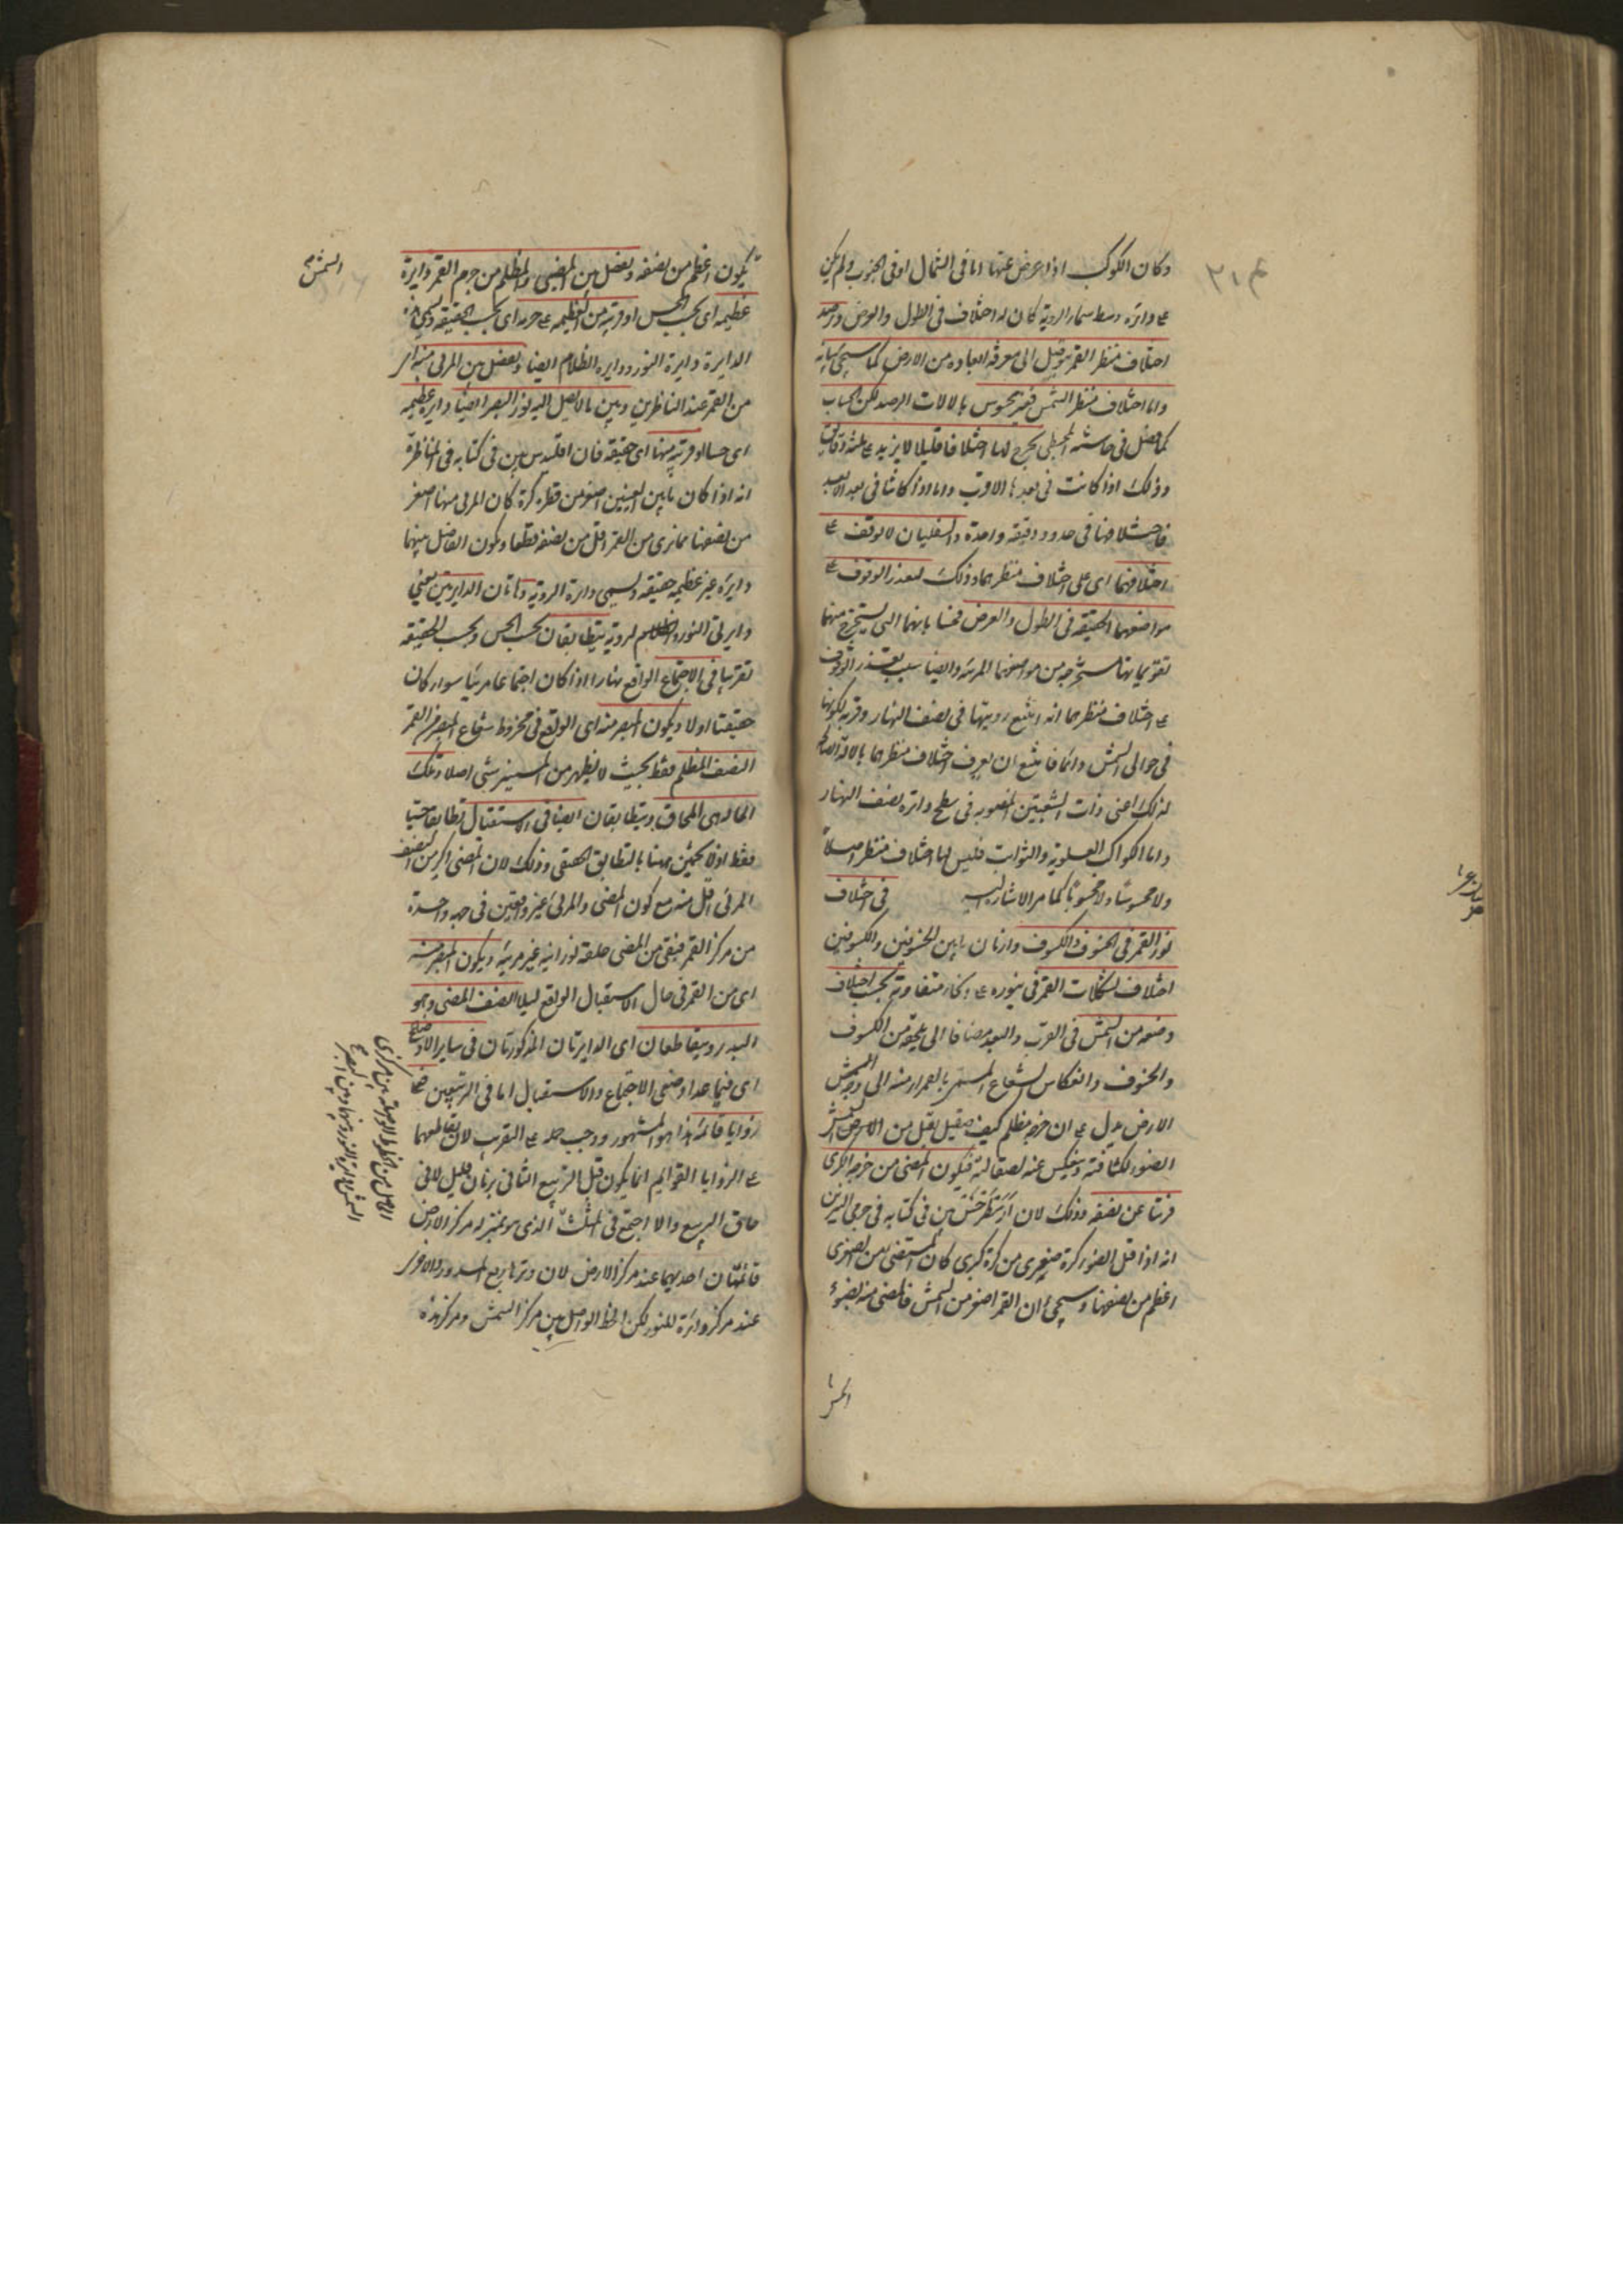 ٣١٤
وكان الكوكب اذا عرض عنها اما فى الشمال او فى الجنوب ولم يكن
على دائرة وسط سماء الروية كان له اختلاف فى الطول والعرض وبرصد
اختلاف منظر القمر يتوصل الى معرفة ابعاده من الارض كما سيجئ بيانه
واما اختلاف منظر الشمس فغير محسوس بالالات الرصد لكن الحساب
كما فصل فى المجسطى يخرج لها اختلافا قليلا لا يزيد على ثلث دقايق
وذلك اذا كانت فى بعدها الاقرب واما اذا كانتا فى بعد الابعد
فاختلافها فى حدود دقيقة واحدة والسفليان لا يوقف على
اختلافهما اى على اختلاف منظرهما وذلك لتعذر الوقوف على
مواضعهما الحقيقة فى الطول والعرض بانهما التى يستخرج منهما
تقويماتها مستخرجة من مواضعهما المرئية وايضا سبب تعذر الوقوف
على اختلاف منظرهما انه امتنع رويتها فى نصف النهار وقربه لكونها
فى حوالى الشمس دائما فامتنع ان يعرف اختلاف منظرهما بالالة الصالحة
لذلك اعنى ذات الشعبتين المنصوبه فى سطح دائرة نصف النهار
واما الكواكب العلوية والثوابت فليس لها اختلاف منظر اصلا
ولا محسوسا ولا محسوبا كما مر الاشارة اليه فى اختلاف
نور القمر فى الخسوف والكسوف وازمان ما بين الخسوفين والكسوفين
اختلاف تشكلات القمر فى نوره على انحاء متفاوتة بحسب اختلاف
وضعه من الشمس فى القرب والبعد مضافا الى ما يلحقه من الكسوف
والخسوف وانعكاس الشعاع المستمر بالقمر منه الى وجه
الارض يدل على ان جرمه مظلم كثيف صقيل يقبل من الشمس
الضوء لكثافته وينعكس عنه لصقالته فيكون المضئ من جرمه الكرى
قريبا عن نصفه وذلك لان ارسطرخس بين فى كتابه فى جرمى النيرين
انه اذا قبل الضوء كرة صغرى من كرة كبرى كان المستضئ من الصغرى
اعظم من نصفها وسيجئ ان القمر اصغر من الشمس فالمضئ منه بضوء
يكون اعظم من نصفه ويفصل بين المضئ والمظلم من جرم القمر دايرة
عظيمة اى بحسب الحس او قريبة من العظيمه على جرمه اى بحسب الحقيقة وسمى هذه
الدايرة دايرة النور ودايرة الظلام ايضا ويفصل بين المرئى منه اى
من القمر عند الناظرين وبين ما لا يصل اليه نور البصر ايضا دايرة عظيمة
اى حسا او قريبة منها اى حقيقة فان اقليدس بين فى كتابه فى المناظرة
انه اذا كان ما بين العينين اصغر من قطر كرة كان المرئى منها اصغر
من نصفها فما نرى من القمر اقل من نصفه قطعا ويكون الفاصل بينهما
دايرة غير عظيمة حقيقة وتسمى دايرة الروية وهاتان الدايرتين يعنى
دايرتى النور والظلام لروية يتطابقان بحسب الحس وبحسب الحقيقة
تقريبا فى الاجتماع الواقع نهارا اذا كان اجتماعا مرئيا سواء كان
حقيقيا اولا ويكون المبصر منه اى الواقع فى مخروط شعاع البصر من القمر
النصف المظلم فقط بحيث لا يظهر من المستنير شئ اصلا وتلك
الحالة هى المحاق ويتطابقان ايضا فى الاستقبال تطابقا حسيا
فقط اذ لا يمكن ههنا بالتطابق الحقيقى وذلك لان المضئ اكبر من النصف
المرئى اقل منه مع كون المضئ والمرئى غير واقعين فى جهة واحدة
من مركز القمر فيبقى من المضئ حلقة نورانية غير مرئية ويكون المبصر منه
اى من القمر فى حال الاستقبال الواقع ليلا النصف المضئ وهو
البدر ويتقاطعان اى الدايرتان المذكورتان فى ساير الاوضاع
اى فيما عدا وضعى الاجتماع والاستقبال اما فى التربيعين فعلى
زوايا قائمة هذا هو المشهور ووجب حمله على التقريب لان تقاطعهما
على الزوايا القوايم انما يكون قبل التربيع الثانى بزمان قليل لا فى
حاق التربيع والا اجتمع فى المثلث الذى هو يمتز له مركز الارض
قائمتان احديهما عند مركز الارض لان وترها ربع الدور والاخرى
عند مركز دائرة للنور لكن الخط الواصل بين مركز الشمس ومركز هذه
الشمس